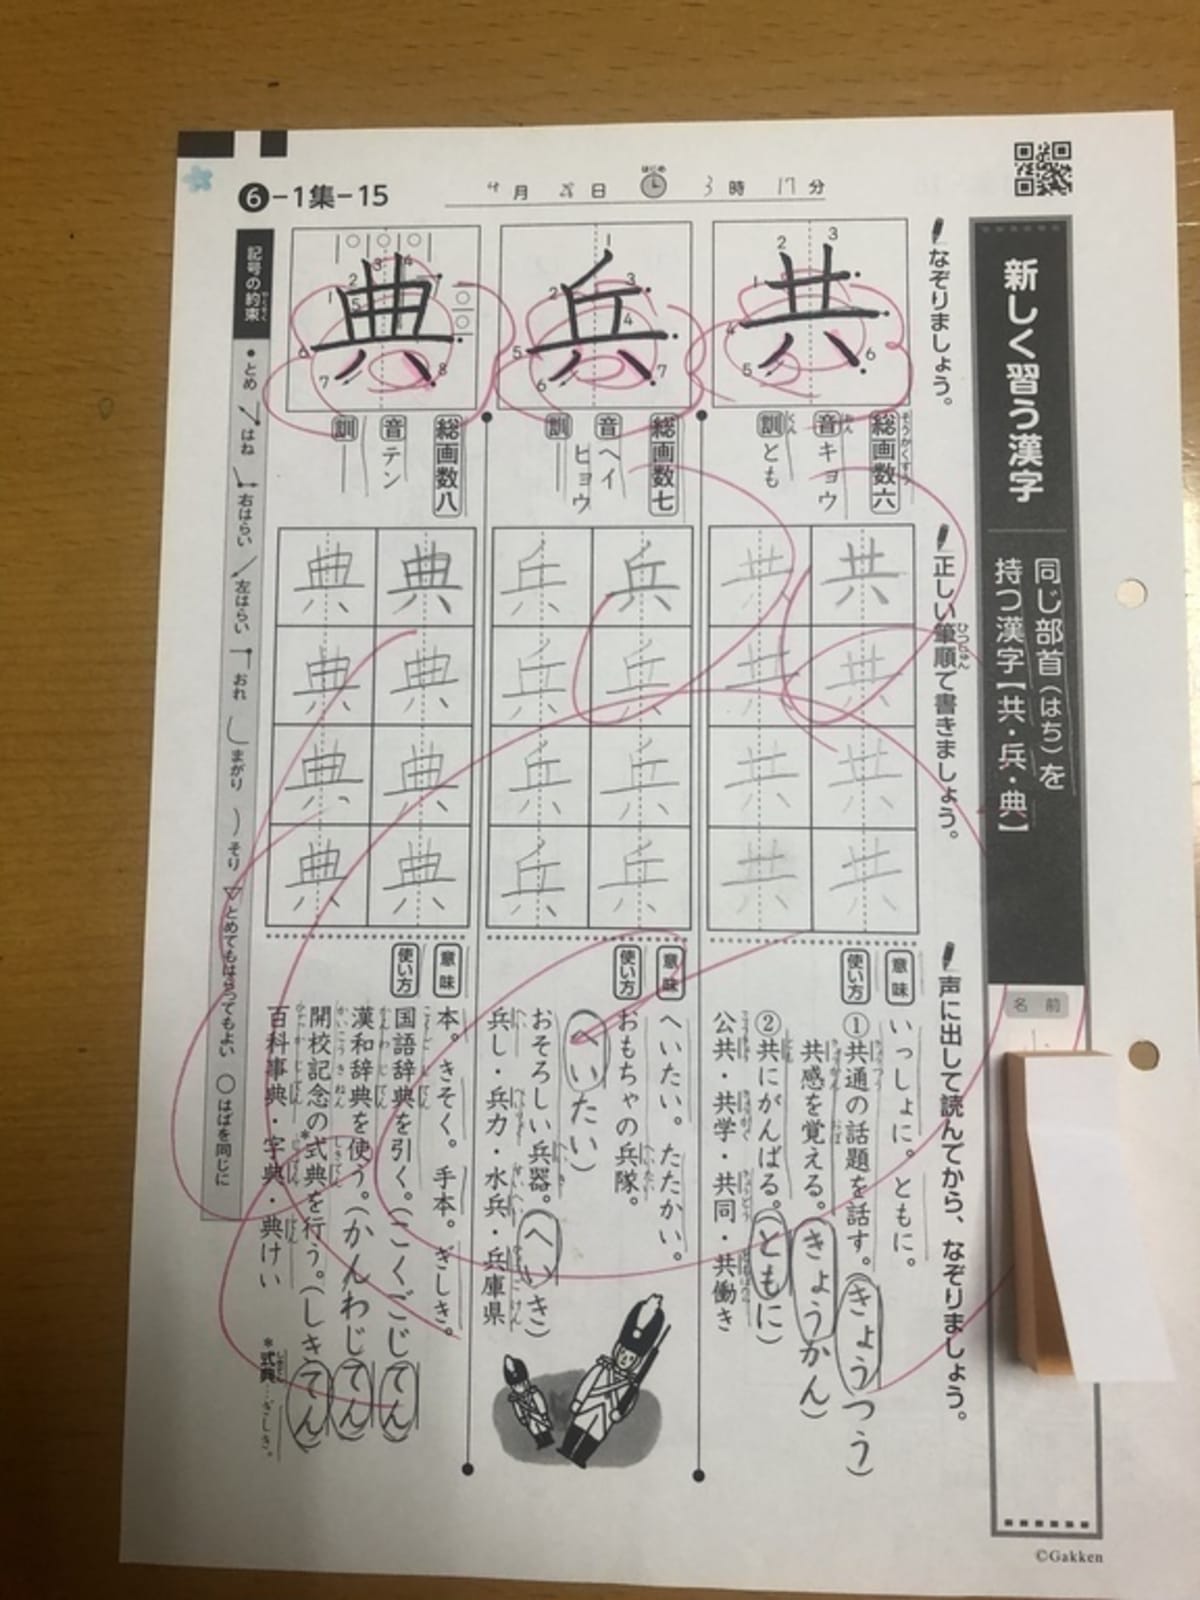 ❻-1集-15
4月28日 はじめ 3時17分
新しく習う漢字
同じ部首(はち)を
持つ漢字【共・兵・典】
名前
なぞりましょう。
正しい筆順で書きましょう。
ひつじゅん
声に出して読んでから、なぞりましょう。
共
1 2 3 4 5 6
総画数六
そうかくすう
音 キョウ
おん
訓 とも
くん
共 共
共 共
共 共
共 共
意味 いっしょに。ともに。
使い方 ①共通の話題を話す。(きょうつう)
共感を覚える。(きょうかん)
②共にがんばる。(ともに)
公共・共学・共同・共働き
兵
1 2 3 4 5 6 7
総画数七
音 ヘイ
ヒョウ
訓 ―
兵 兵
兵 兵
兵 兵
兵 兵
意味 へいたい。たたかい。
使い方 おもちゃの兵隊。
(へいたい)
おそろしい兵器。(へいき)
兵し・兵力・水兵・兵庫県
典
1 2 3 4 5 6 7 8
総画数八
音 テン
訓 ―
典 典
典 典
典 典
典 典
意味 本。きそく。手本。ぎしき。
使い方 国語辞典を引く。(こくごじてん)
漢和辞典を使う。(かんわじてん)
開校記念の*式典を行う。(しきてん)
百科事典・字典・典けい
*式典…ぎしき。
記号の約束
●とめ はね 右はらい 左はらい おれ まがり そり ▽とめてもはらってもよい ○はばを同じに
©Gakken